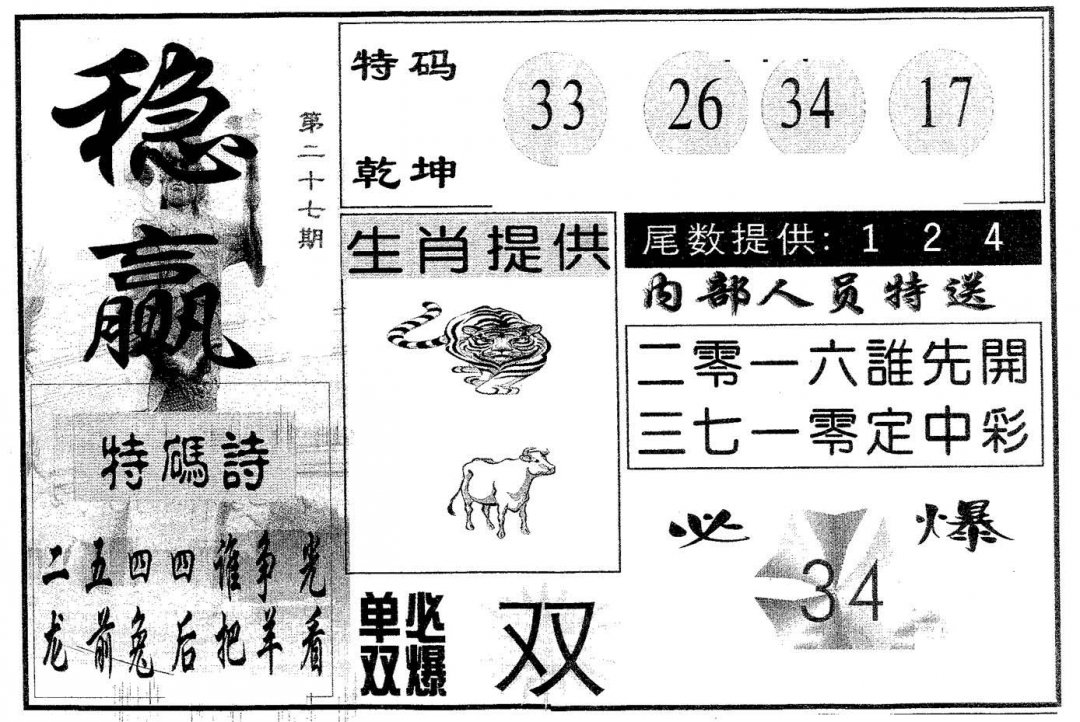 稳赢
第二十七期
特码诗
二五四四谁争光
龙前兔后把羊看
特码
乾坤
33 26 34 17
生肖提供
尾数提供: 1 2 4
内部人员特送
二零一六誰先開
三七一零定中彩
必爆
34
单双
必爆
双